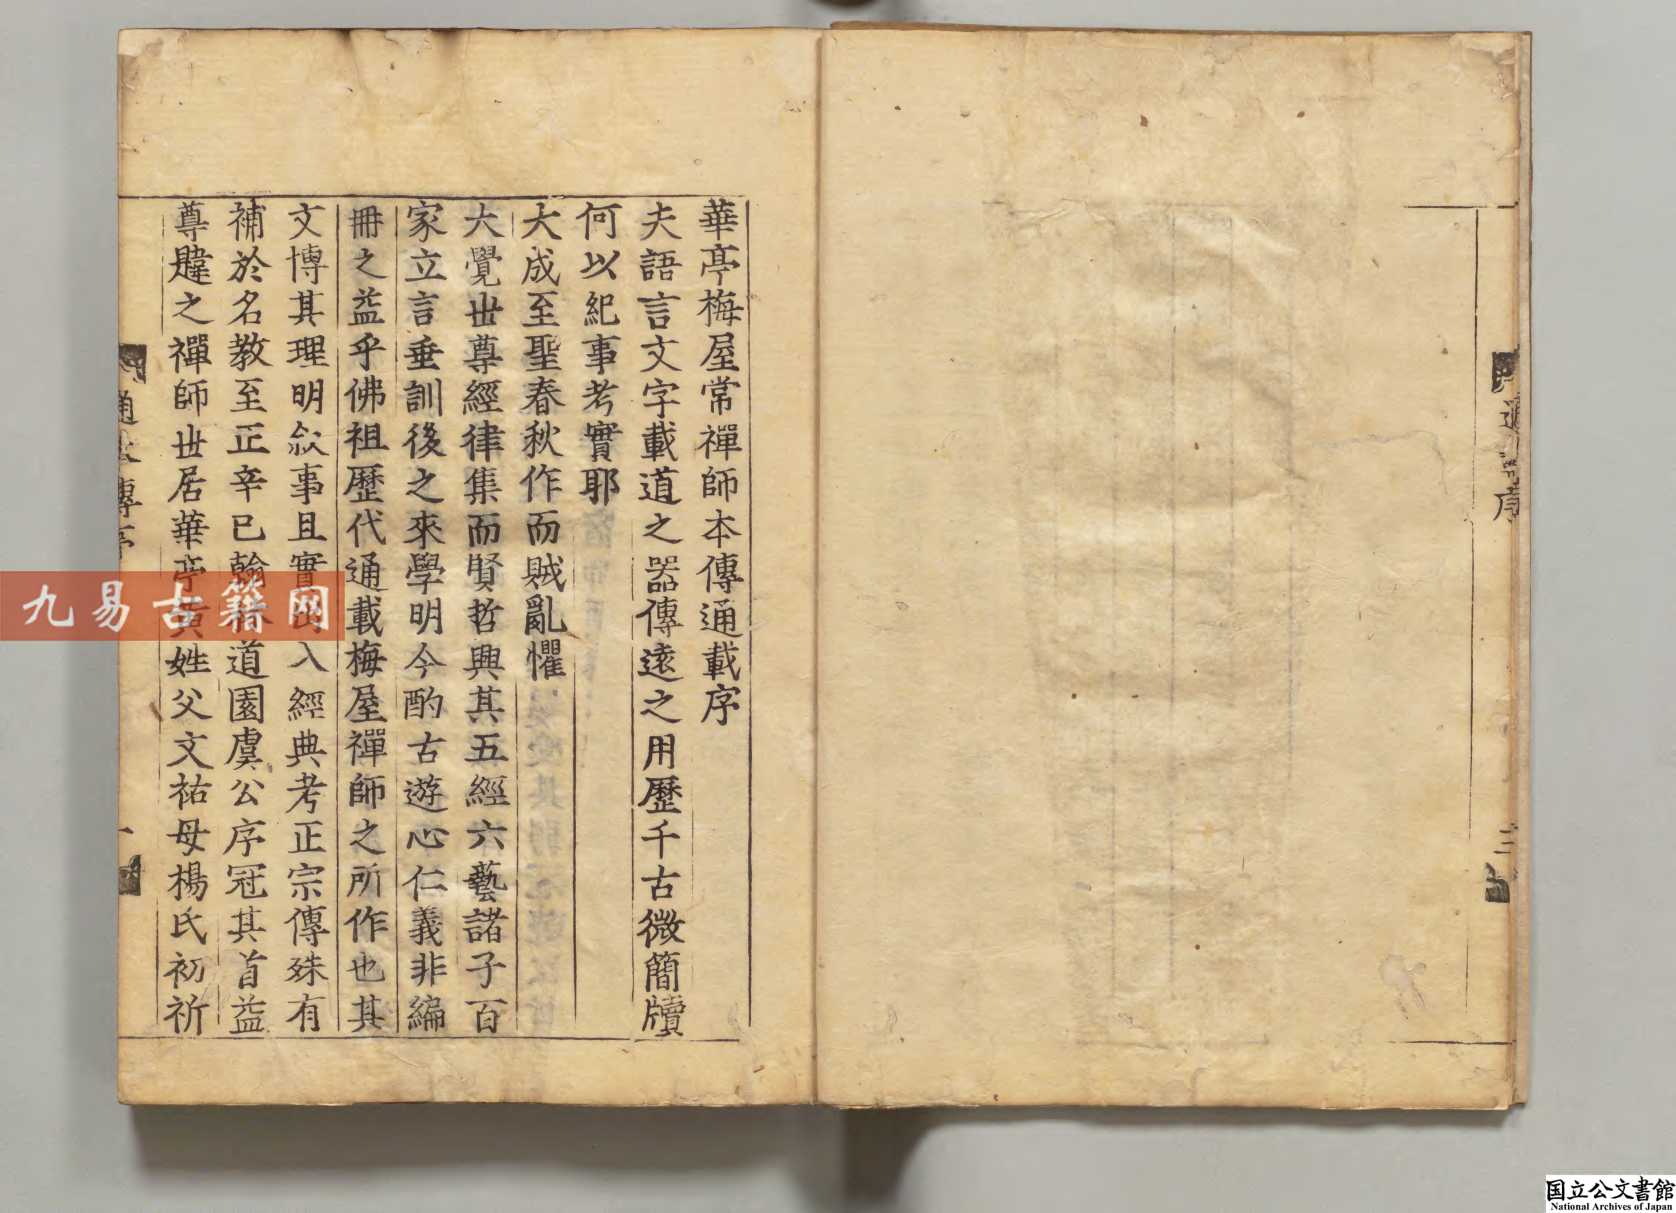 華亭梅屋常禪師本傳通載序
夫語言文字載道之器傳遠之用歷千古微簡牘
何以紀事考實耶
大成至聖春秋作而賊亂懼
大覺世尊經律集而賢哲興其五經六藝諸子百
家立言垂訓後之來學明今酌古遊心仁義非編
冊之益乎佛祖歷代通載梅屋禪師之所作也其
文博其理明敘事且實出入經典考正宗傳殊有
補於名教至正辛巳翰林道園虞公序冠其首益
尊韙之禪師世居華亭黃姓父文祐母楊氏初祈
通公傳序
一
通 序
三
九易古籍网
国立公文書館
National Archives of Japan